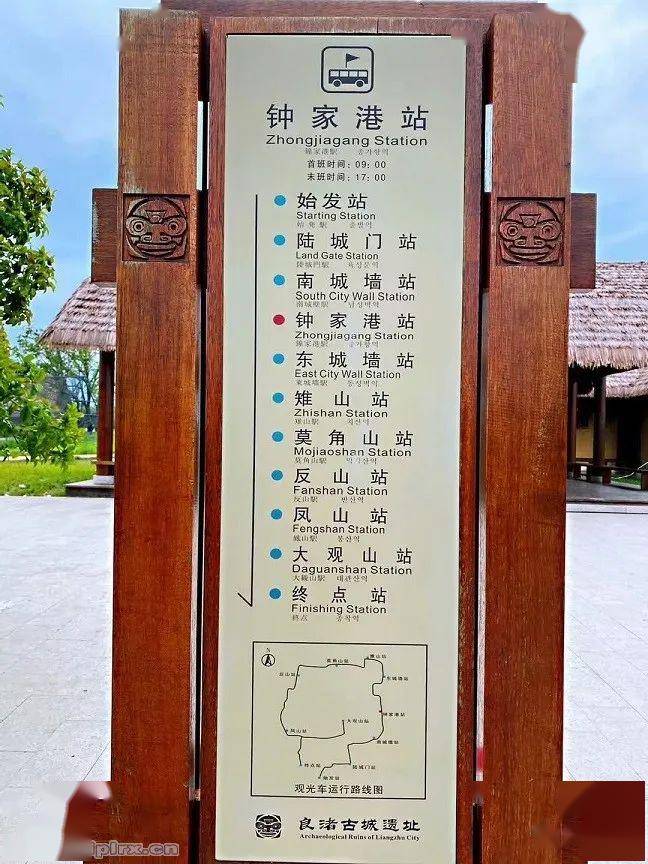 钟家港站
Zhongjiagang Station
鐘家港駅 종가항역
首班时间：09：00
末班时间：17：00
始发站
Starting Station
始発駅 출발역
陆城门站
Land Gate Station
陸城門駅 육성문역
南城墙站
South City Wall Station
南城壁駅 남성벽역
钟家港站
Zhongjiagang Station
鐘家港駅 종가항역
东城墙站
East City Wall Station
東城墻駅 동성벽역
雉山站
Zhishan Station
雉山駅 치산역
莫角山站
Mojiaoshan Station
莫角山駅 막각산역
反山站
Fanshan Station
反山駅 반산역
凤山站
Fengshan Station
鳳山駅 봉산역
大观山站
Daguanshan Station
大観山駅 대관산역
终点站
Finishing Station
終点 종착역
N
莫角山站
雉山站
反山站
东城墙站
钟家港站
大观山站
凤山站
南城墙站
终点站
陆城门站
始发站
观光车运行路线图
良渚古城遗址
Archaeological Ruins of Liangzhu City
plrx.cn